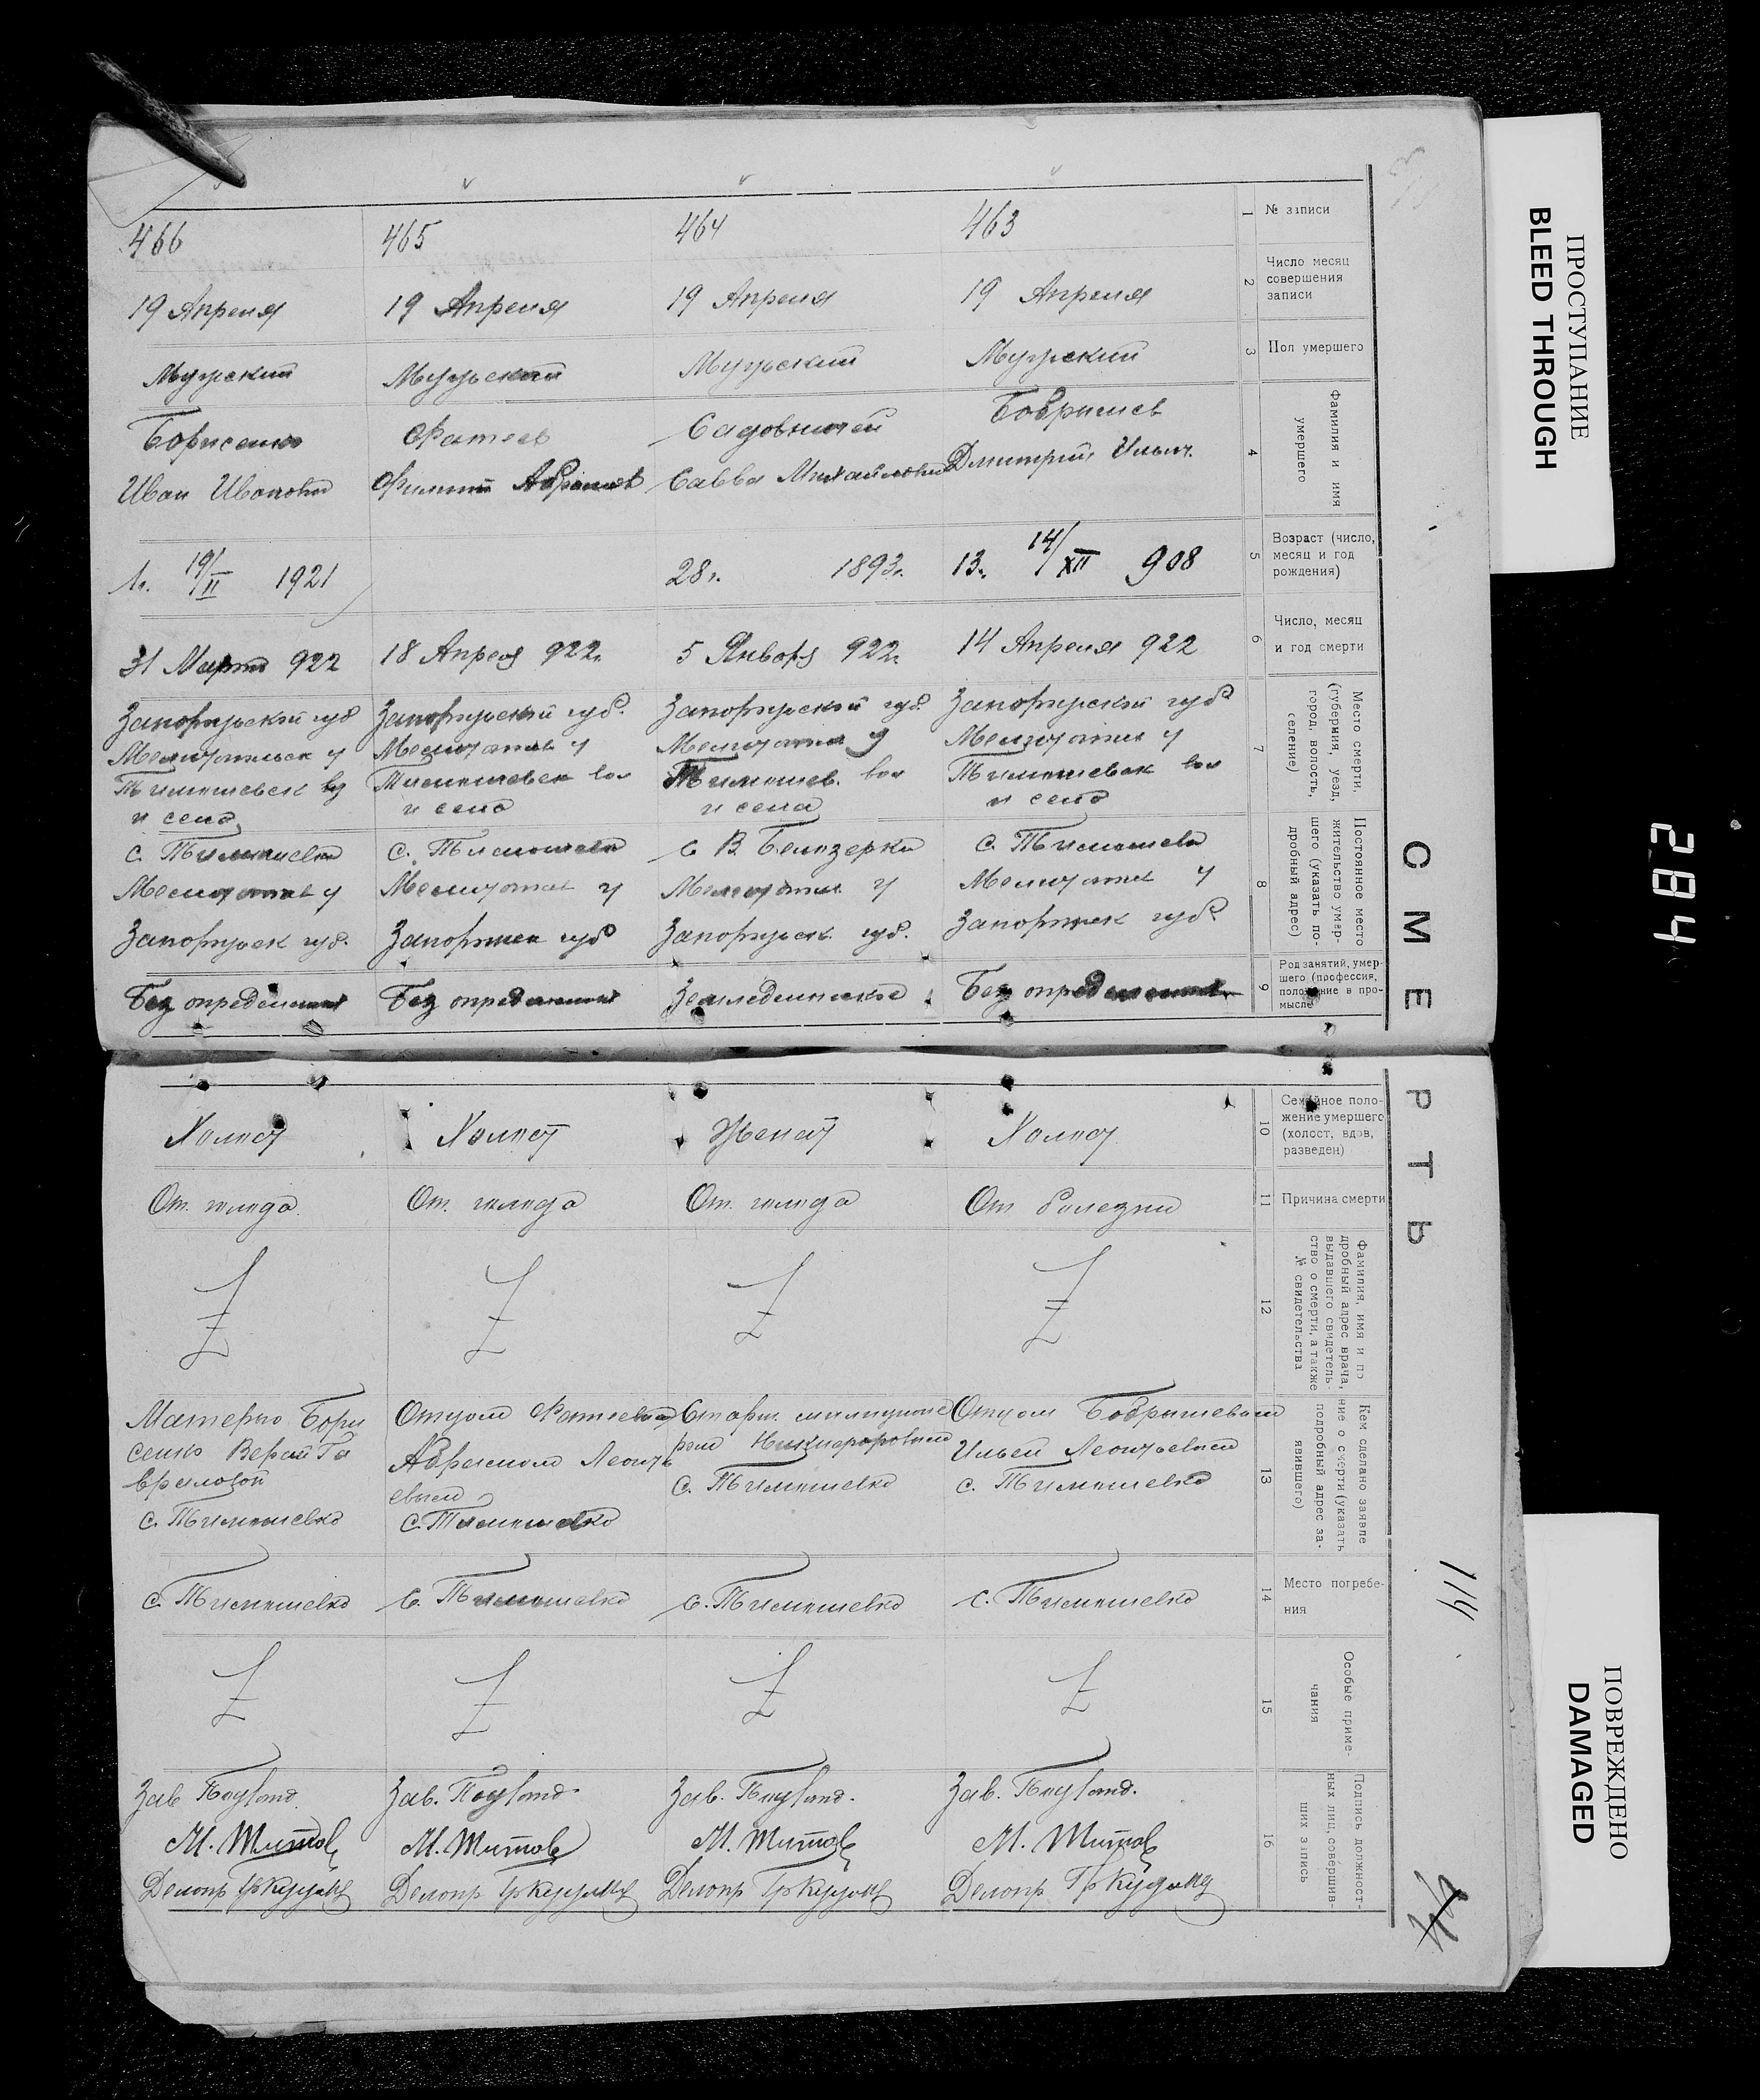 ПРОСТУПАНИЕ
BLEED THROUGH
284
СМЕРТЬ
114
ПОВРЕЖДЕНО
DAMAGED
1 № записи
463
464
465
466
2 Число месяц
совершения
записи
19 Апреля
19 Апреля
19 Апреля
19 Апреля
3 Пол умершего
Мужский
Мужьский
Мужьский
Мужский
4 Фамилия и имя
умершего
Бобрышев
Дмитрий Ильич
Садовничий
Савва Михайлович
Фатеев
Филипп Абрамов
Борисенко
Иван Иванович
5 Возраст (число,
месяц и год
рождения)
13. 14/XII 908
28г. 1893г.
1г. 19/II 1921
6 Число, месяц
и год смерти
14 Апреля 922
5 Января 922г.
18 Апреля 922г.
31 Марта 922
7 Место смерти.
(губерния, уезд,
город, волость,
селение)
Запоружский губ
Мелитопол у
Тимошевск вол
и село
Запоружский губ
Мелитопол у
Тимошев. вол
и села
Запоружский губ.
Мелитопол у
Тимошевск вол
и село
Запоружский губ
Мелитопольск у
Тимошевск в
и село
8 Постоянное место
жительство умер-
шего (указать по-
дробный адрес)
с. Тимошевка
Мелитопол у
Запорожск губ
с. В Белозерка
Мелитопол у
Запоружск. губ.
с. Тимошевка
Мелитопол у
Запорожск губ
с. Тимошевка
Мелитопол у
Запоружск губ.
9 Род занятий, умер-
шего (профессия,
положение в про-
мысле)
Без определенных
Земледельческое
Без определенных
Без определенных
10 Семейное поло-
жение умершего
(холост, вдов,
разведен)
Холост
Женат
Холост
Холост
11 Причина смерти
От болезни
От голода
От голода
От голода
12 Фамилия, имя и по
дробный адрес врача,
выдавшего свидетель-
ство о смерти, а также
№ свидетельства
13 Кем сделано заявле
ние о смерти (указать
подробный адрес за-
явившего)
Отцом Бобрышевым
Ильей Леонтьевым
с. Тимошевка
Старш. милиционе
ром Никифоровым
с. Тимошевка
Отцом Фатеевым
Абрамом Леонть
евым
с. Тимошевка
Матерью Бори
сенко Верой Га
вриловой
с. Тимошевка
14 Место погребе-
ния
с. Тимошевка
с. Тимошевка
с. Тимошевка
с. Тимошевка
15 Особые приме-
чания
16 Подпись должност-
ных лиц, совершив-
ших запись
Зав.
М. Титов
Делопр
Зав.
М. Титов
Делопр
Зав.
М. Титов
Делопр
Зав
М. Титов
Делопр